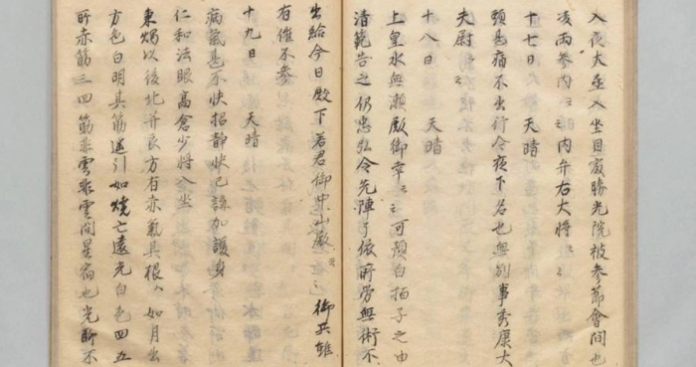 入夜大丞入坐自最勝光院被参節會間也
凌雨参内云々内弁右大将云々
十七日 天晴
頭甚痛不出行今夜下名也無別事秀康大
夫尉云々
十八日 天晴
上皇水無瀬殿御幸云々可預白拍子之由
清範告之仍忠弘令先陣了依所労無術不
出給今日殿下若君御中山殿云々 御共雖
有催不参
十九日 天晴
病氣甚不快招静快已講加護身
仁和法眼高倉少将入坐
秉燭以後北并艮方有赤氣其根ハ如月出
方色白明其筋遥引如焼亡遠光白色四五
所赤筋三四筋非雲非雲間星宿也光聊不